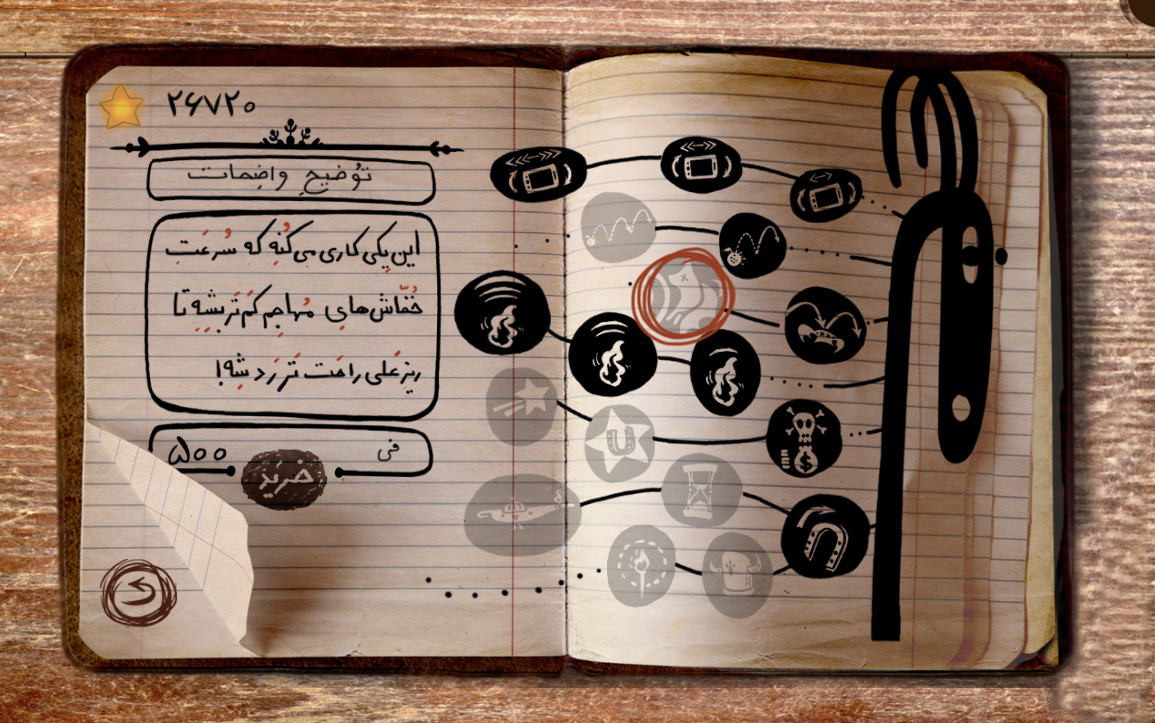 ۲۶۷۲۰
توُضیحِ واضِحات
این یِکی کاری می‌کُنِه که سُرعَتِ
خُفّاش‌هایِ مُهاجِم کَم‌تَر بِشِه تا
ریزعَلی راحَت تَر رَد شِه!
فی ۵۰۰
خَرید